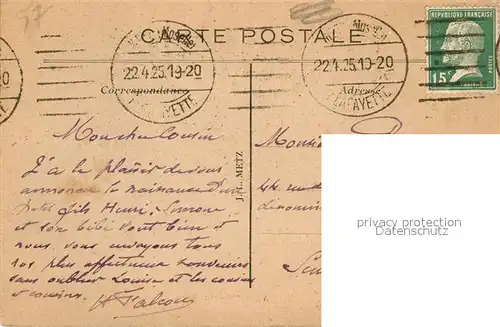 37
CARTE POSTALE
Moselle
22.4.25.19-20
LAFAYETTE
Moselle
22.4.25.19-20
LAFAYETTE
20
REPUBLIQUE FRANÇAISE
15c
POSTES
Correspondance
Adresse
J.L. METZ
Mon cher Cousin
J'ai le plaisir de vous
annoncer la naissance d'un
petit fils Henri. Simone
et son bébé vont bien et
nous vous envoyons tous
nos plus affectueux souvenirs
sans oublier Louise et les cousins
et cousines.
Monsieur
privacy protection
Datenschutz